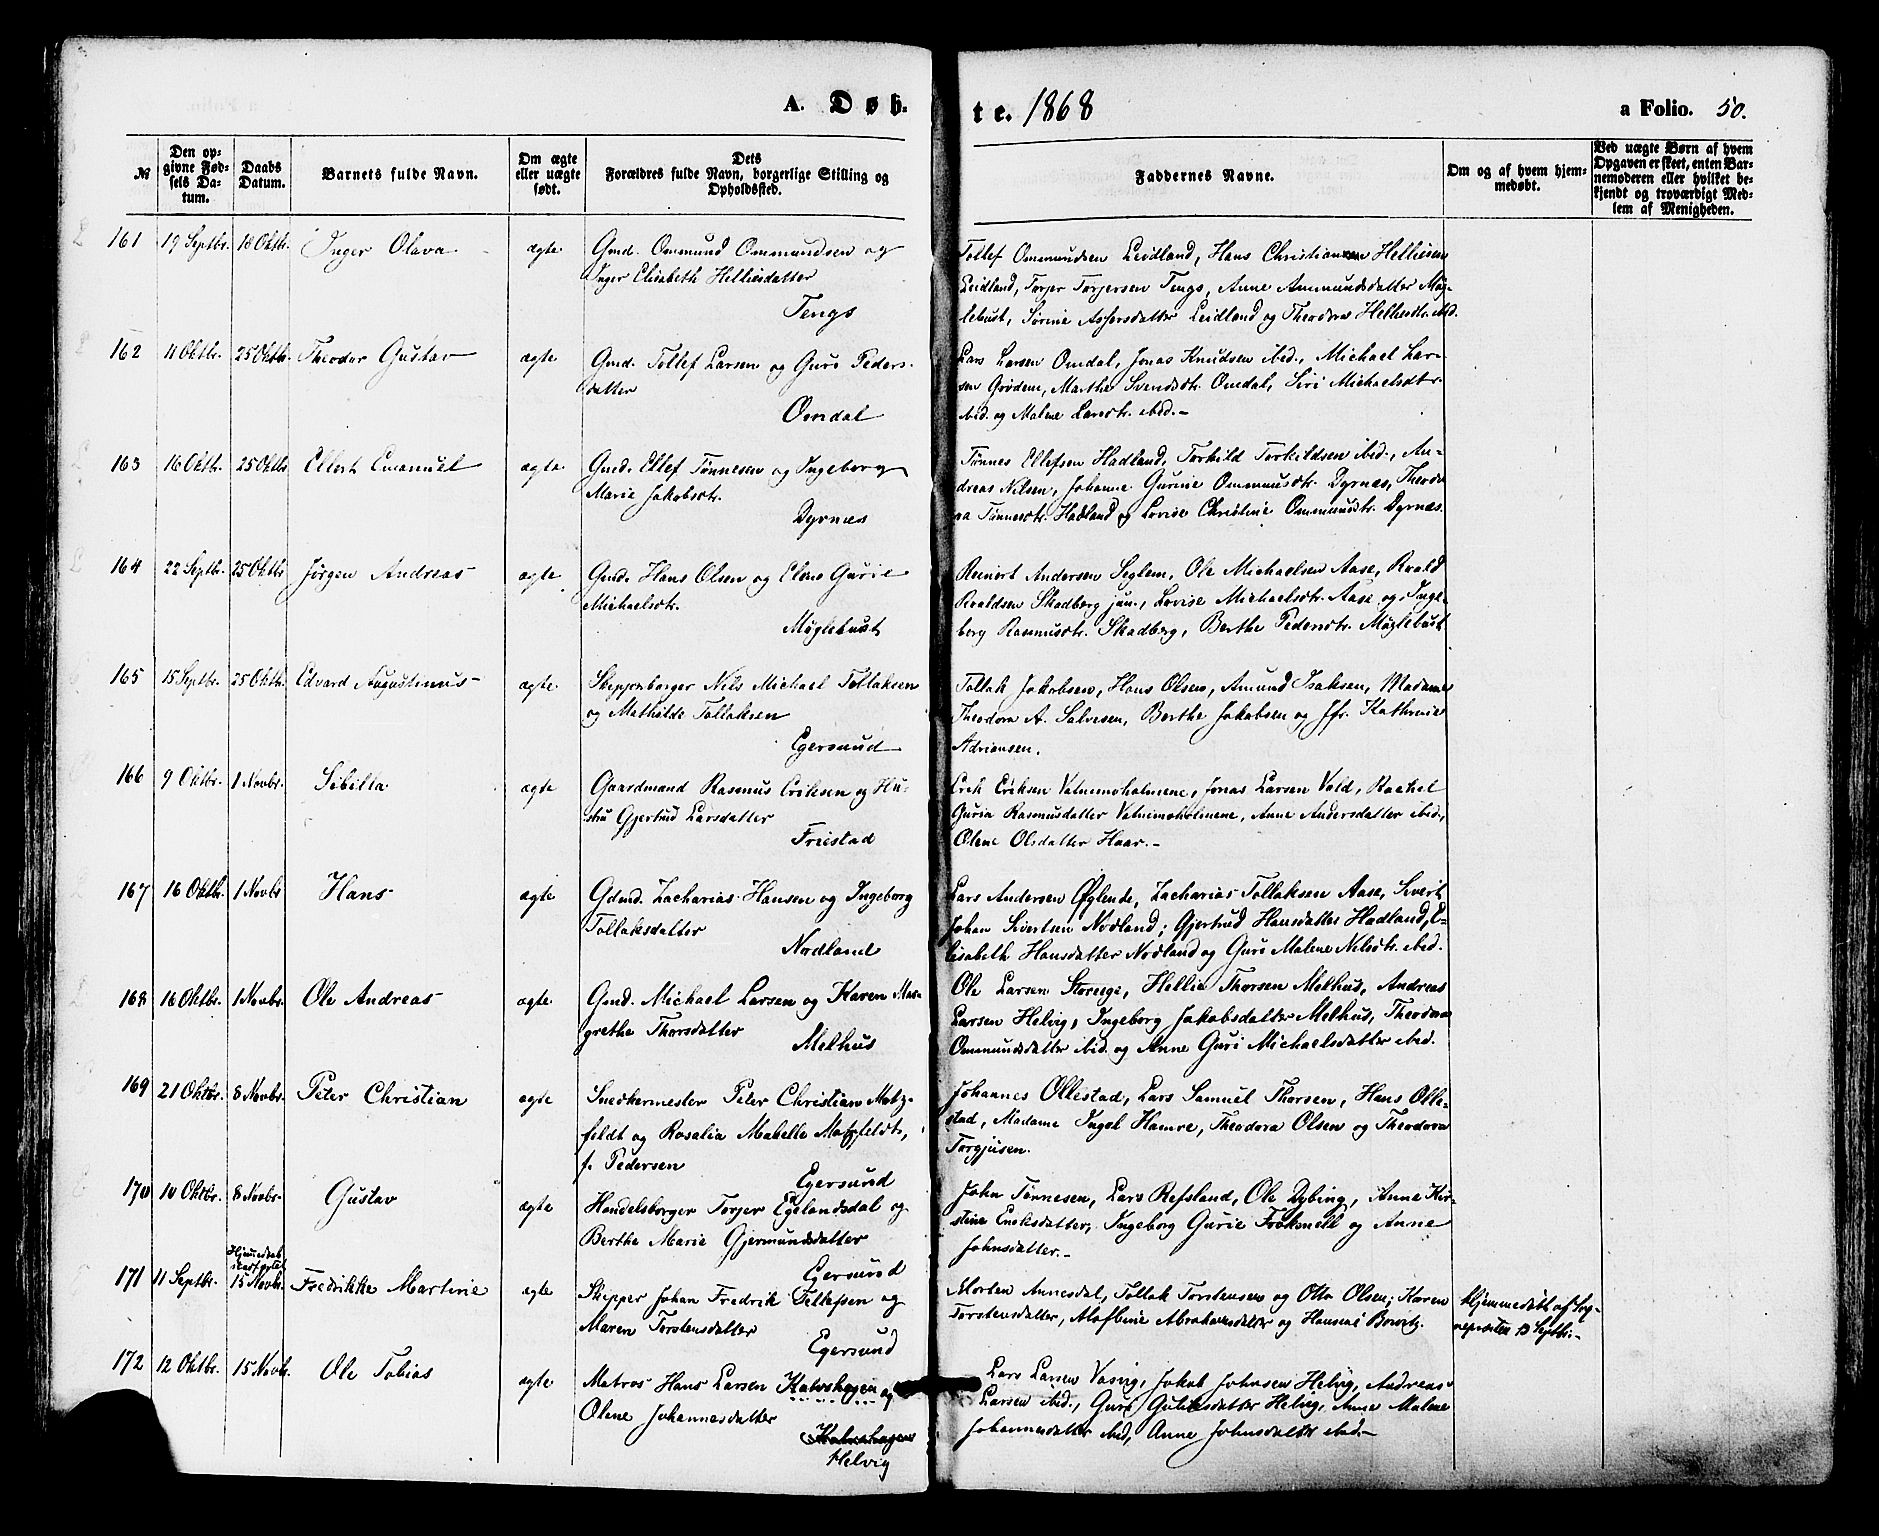 A. Døb-
te. 1868
a Folio. 50.
№
Den op-
givne Fød-
sels Da-
tum.
Daabs
Datum.
Barnets fulde Navn.
Om ægte
eller uægte
født.
Dets
Forældres fulde Navn, borgerlige Stilling og
Opholdssted.
Faddernes Navne.
Om og af hvem hjem-
medøbt.
Ved uægte Børn af hvem
Opgaven er skeet, enten Bar-
nemoderen eller hvilket be-
kjendt og troværdigt Med-
lem af Menigheden.
161 19 Septbr. 18 Oktbr. Inger Olava ægte Gmd. Ommund Ommundsen og
Inger Elisabeth Helliesdatter
Tengs
Tollef Ommundsen Leidland, Hans Christian Helliesen
Leidland, Torjer Torjersen Tengs, Anne Ammundsdatter Møg-
lebust, Sørine Leidland og Theodora ibid.
162 11 Oktbr. 25 Oktbr. Theodor Gustav ægte Gmd. Tollef Larsen og Guri Peders-
datter
Omdal
Lars Larsen Omdal, Jonas Knudsen ibid., Michael Lar-
sen Grødem, Marthe Svendsdtr. Omdal, Siri Michaelsdtr.
ibid. og Malene Larsdtr. ibid.-
163 16 Oktbr. 25 Oktbr Ellert Emanuel ægte Gmd. Ellef Tønnesen og Ingeborg
Marie Jakobsdtr.
Dyrnes
Tønnes Ellefsen Hadland, Torkild Torkildsen ibid., An-
dreas Nilsen, Johanne Gurine Ommundsdtr. Dyrnes, Theodo
ra Tønnesdtr. Hadland og Lovise Christine Ommundsdtr. Dyrnes.
164 22 Septbr. 25 Oktbr Jørgen Andreas ægte Gmd. Hans Olsen og Elen Gurie
Michaelsdtr.
Møglebust
Reinert Andersen Seglem, Ole Michaelsen Aase, Roald
Roaldsen Skadberg jun., Lovise Michaelsdtr. Aase og Inge-
borg Rasmusdtr. Skadberg, Berthe Pedersdtr. Møglebust
165 15 Septbr. 25 Oktbr. Edvard Augustinus ægte Skipperborger Nils Michael Tollaksen
og Mathilde Tollaksen
Egersund
Tollak Jakobsen, Hans Olsen, Amund Isaksen, Madame
Theodora A. Salvesen, Berthe Jakobsen og Jfr. Kathrine
Adriansen.
166 9 Oktbr. 1 Novbr. Sibilla ægte Gaardmand Rasmus Eriksen og Hu-
stru Gjertrud Larsdatter
Friestad
Erik Eriksen Vatnemoholmene, Jonas Larsen Vold, Rachel
Guria Rasmusdatter Vatnemoholmene, Anne Andersdatter ibid.,
Olene Olsdatter Haar.-
167 16 Oktbr. 1 Novbr Hans ægte Gdmd. Zacharias Hansen og Ingeborg
Tollaksdatter
Nodland
Lars Andersen Øglende, Zacharias Tollaksen Aase, Sivert
Johan Sivertsen Nodland; Gjertrud Hansdatter Hadland, E-
lisabeth Hansdatter Nodland og Guri Malene Nilsdtr. ibid.
168 16 Oktbr. 1 Novbr. Ole Andreas ægte Gmd. Michael Larsen og Karen Mar-
grethe Thorsdatter
Melhus
Ole Larsen Stornge, Hellie Thorsen Melhus, Andreas
Larsen Helvig, Ingeborg Jakobsdatter Melhus, Theodora
Ommundsdatter ibid. og Anne Guri Michaelsdatter ibid.
169 21 Oktbr. 8 Novbr. Peter Christian ægte Snedkermester Peter Christian Motz-
feldt og Rosalia Mabelle Motzfeldt,
f. Pedersen
Egersund
Johannes Ollestad, Lars Samuel Thorsen, Hans Olle-
stad, Madame Ingel Hamre, Theodora Olsen og Theodora
Torgjusen.
170 10 Oktbr. 8 Novbr. Gustav ægte Handelsborger Torjer Egelandsdal og
Berthe Marie Gjermundsdatter
Egersund
John Tønnesen, Lars Refsland, Ole Dybing, Anne Kir-
stine Enoksdatter, Ingeborg Gurie og Anne
Johnsdatter.-
171 11 Septbr. 15 Novbr. Fredrikke Martine ægte Skipper Johan Fredrik Tollefsen og
Maren Torstensdatter
Egersund
Morten Annesdal, Tollak Torstensen og Otto Olsen; Karen
Torstensdatter, Abrahamsdatter og
Hjemmedøbt af Sog-
nepræsten 13 Septbr.-
172 12 Oktbr. 15 Novbr. Ole Tobias ægte Matros Hans Larsen Kalvehagen og
Olene Johannesdatter
Kalvehagen
Helvig
Lars Larsen Vasvig, Jakob Johnsen Helvig, Andreas
Larsen ibid., Guri Helvig, Anne Malene
Johannesdatter ibid, Anne Johnsdatter ibid.-